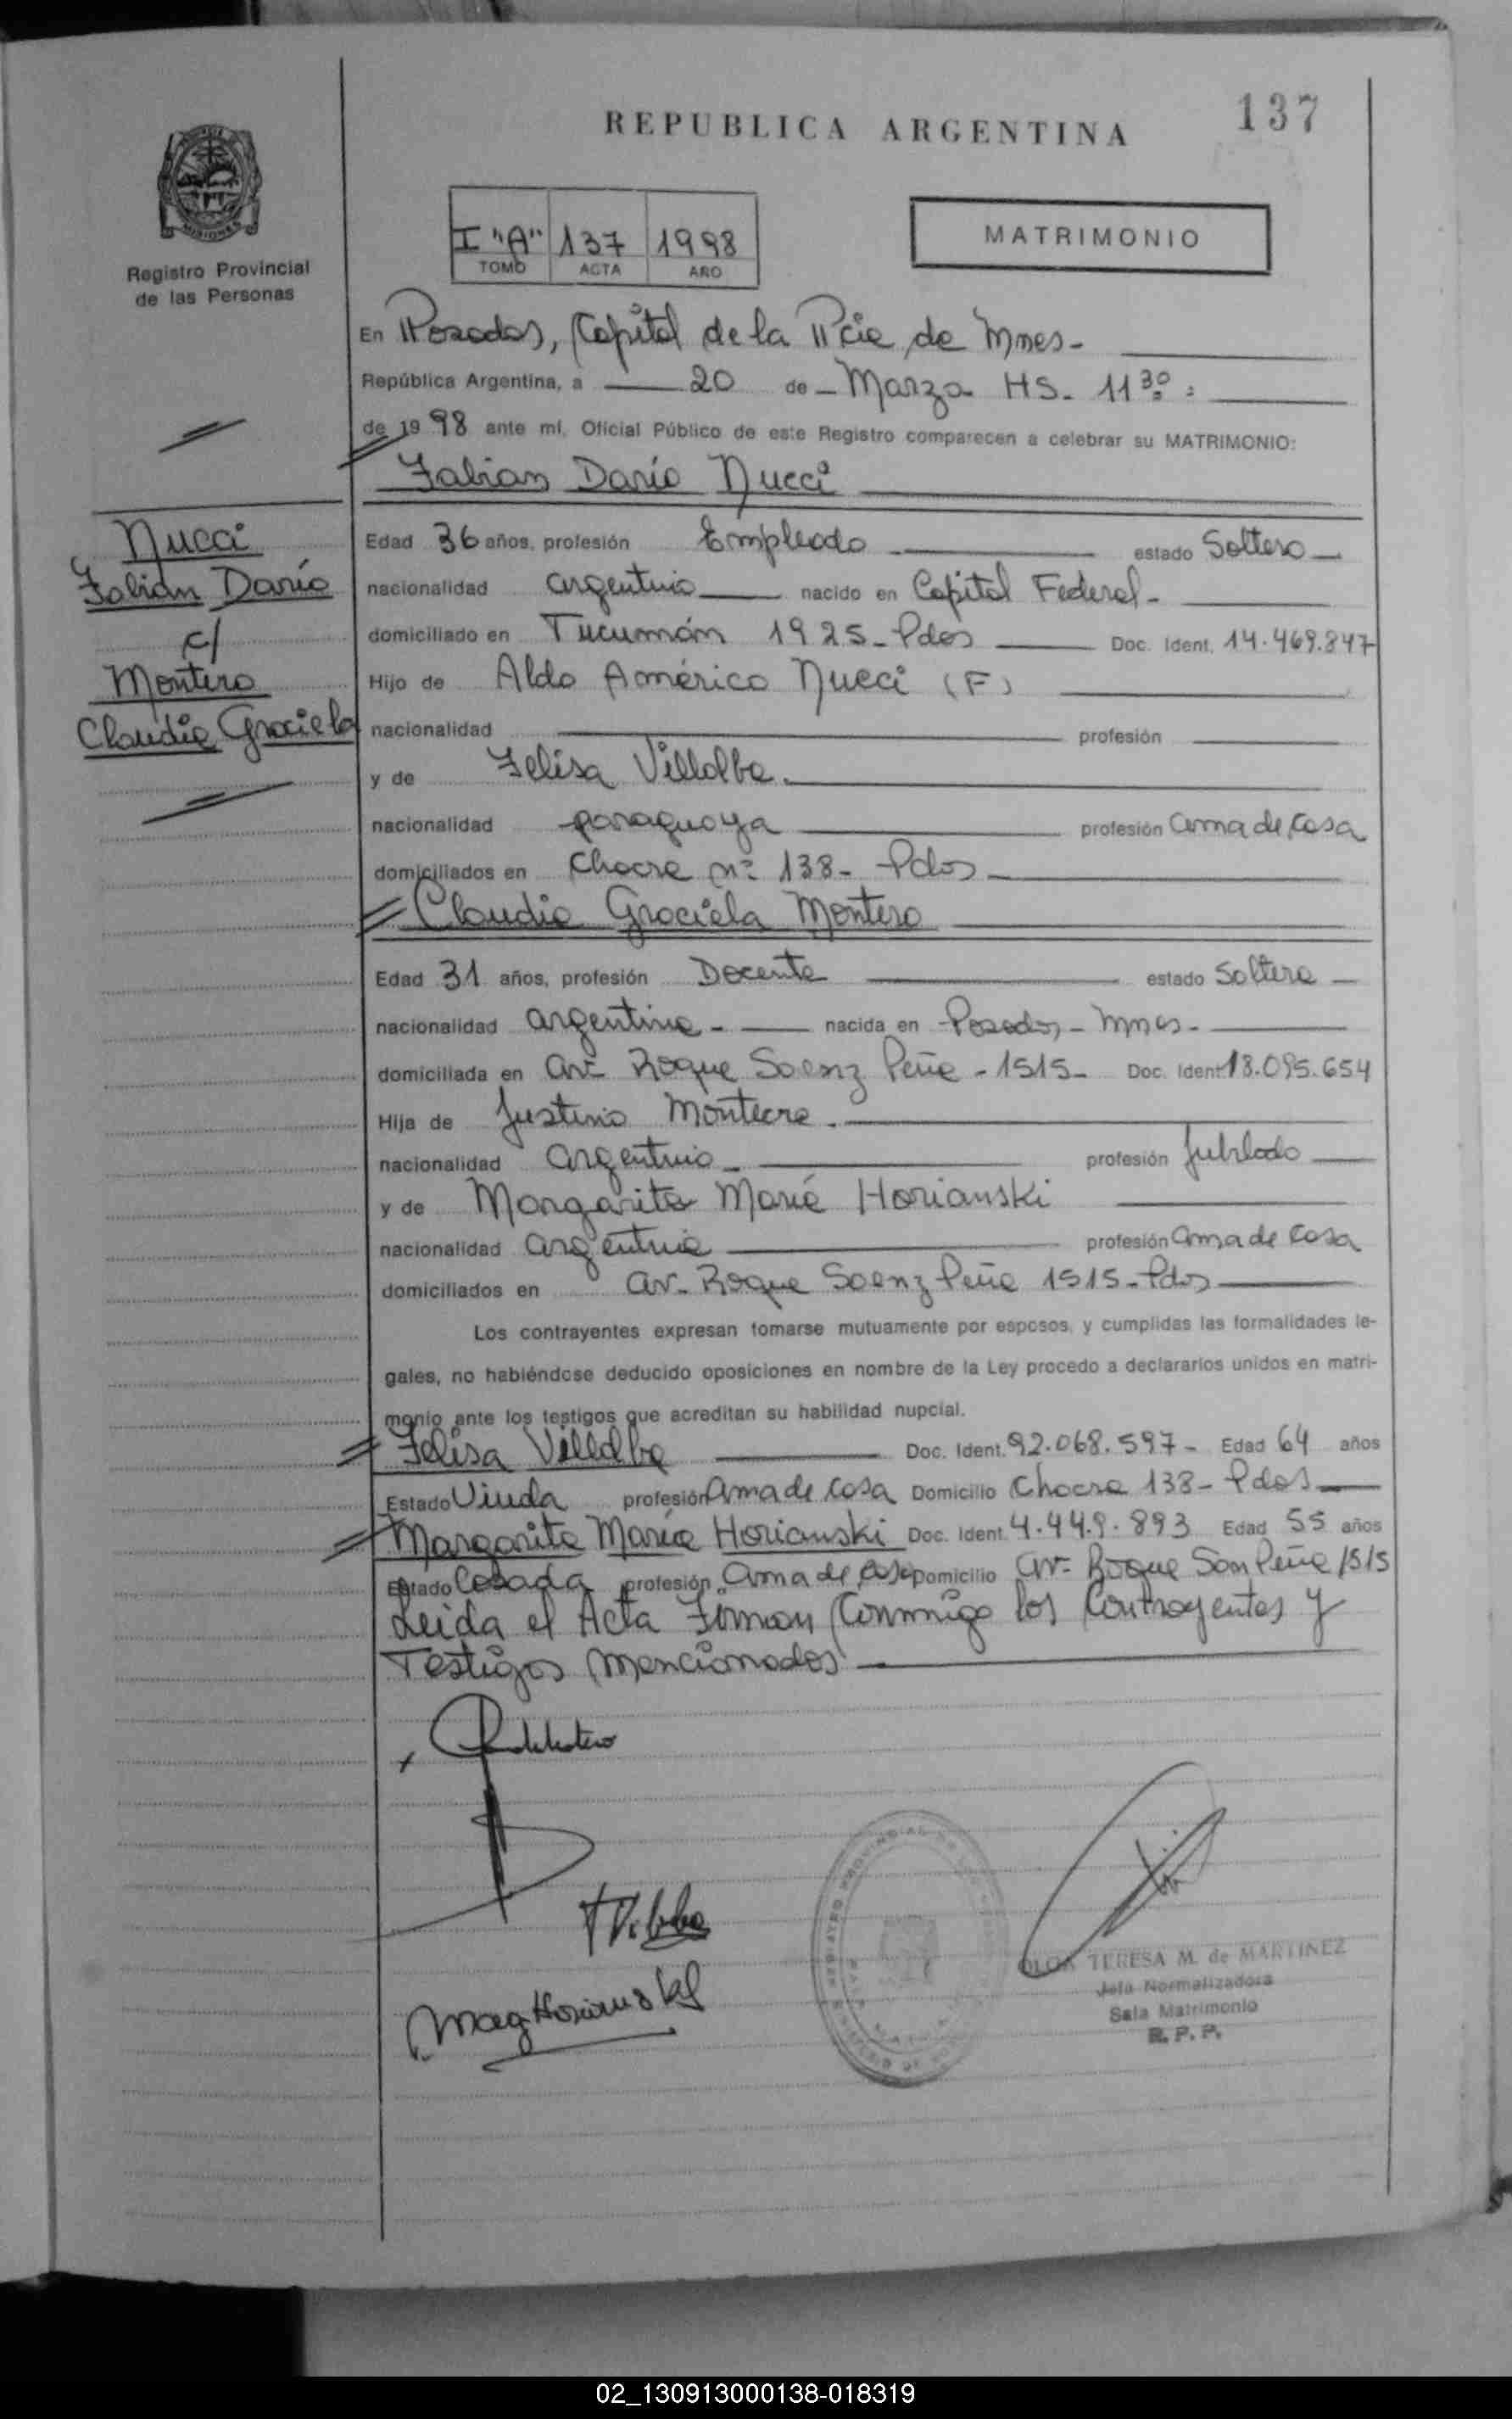 137
REPUBLICA ARGENTINA
MISIONES
Registro Provincial
de las Personas
I "A" 137 1998
TOMO ACTA AÑO
MATRIMONIO
En Posadas, Capital de la Pcia de Mnes-
República Argentina, a 20 de Marzo HS. 11 30
de 19 98 ante mí, Oficial Público de este Registro comparecen a celebrar su MATRIMONIO:
Fabian Darío Nucci
Nucci
Fabián Darío
c/
Montero
Claudia Graciela
Edad 36 años, profesión Empleado estado Soltero
nacionalidad argentino nacido en Capital Federal-
domiciliado en Tucumán 1925- Pdas Doc. Ident. 14.469.847
Hijo de Aldo Américo Nucci (F)
nacionalidad profesión
y de Felisa Villalba.
nacionalidad paraguaya profesión ama de casa
domiciliados en Chacra nº 138- Pdas
Claudia Graciela Montero
Edad 31 años, profesión Docente estado Soltera
nacionalidad argentina- nacida en Posadas- Mnes-
domiciliada en av. Roque Saenz Peña - 1515- Doc. Ident 18.095.654
Hija de Justino Montero.
nacionalidad argentino profesión Jubilado
y de Margarita María Horianski
nacionalidad argentina profesión ama de casa
domiciliados en av- Roque Saenz Peña 1515- Pdas
Los contrayentes expresan tomarse mutuamente por esposos, y cumplidas las formalidades le-
gales, no habiéndose deducido oposiciones en nombre de la Ley procedo a declararlos unidos en matri-
monio ante los testigos que acreditan su habilidad nupcial.
Felisa Villalba Doc. Ident. 92.068.597- Edad 64 años
Estado Viuda profesión ama de casa Domicilio Chacra 138- Pdas
Margarita María Horianski Doc. Ident. 4.449.893 Edad 55 años
Estado Casada profesión ama de casa Domicilio av- Roque Saen Peña 1515
Leida el Acta Firman Conmigo los Contrayentes y
Testigos mencionados
Mag Horianski
TERESA M. de MARTINEZ
Jefa Normalizadora
Sala Matrimonio
R. P. P.
02_130913000138-018319